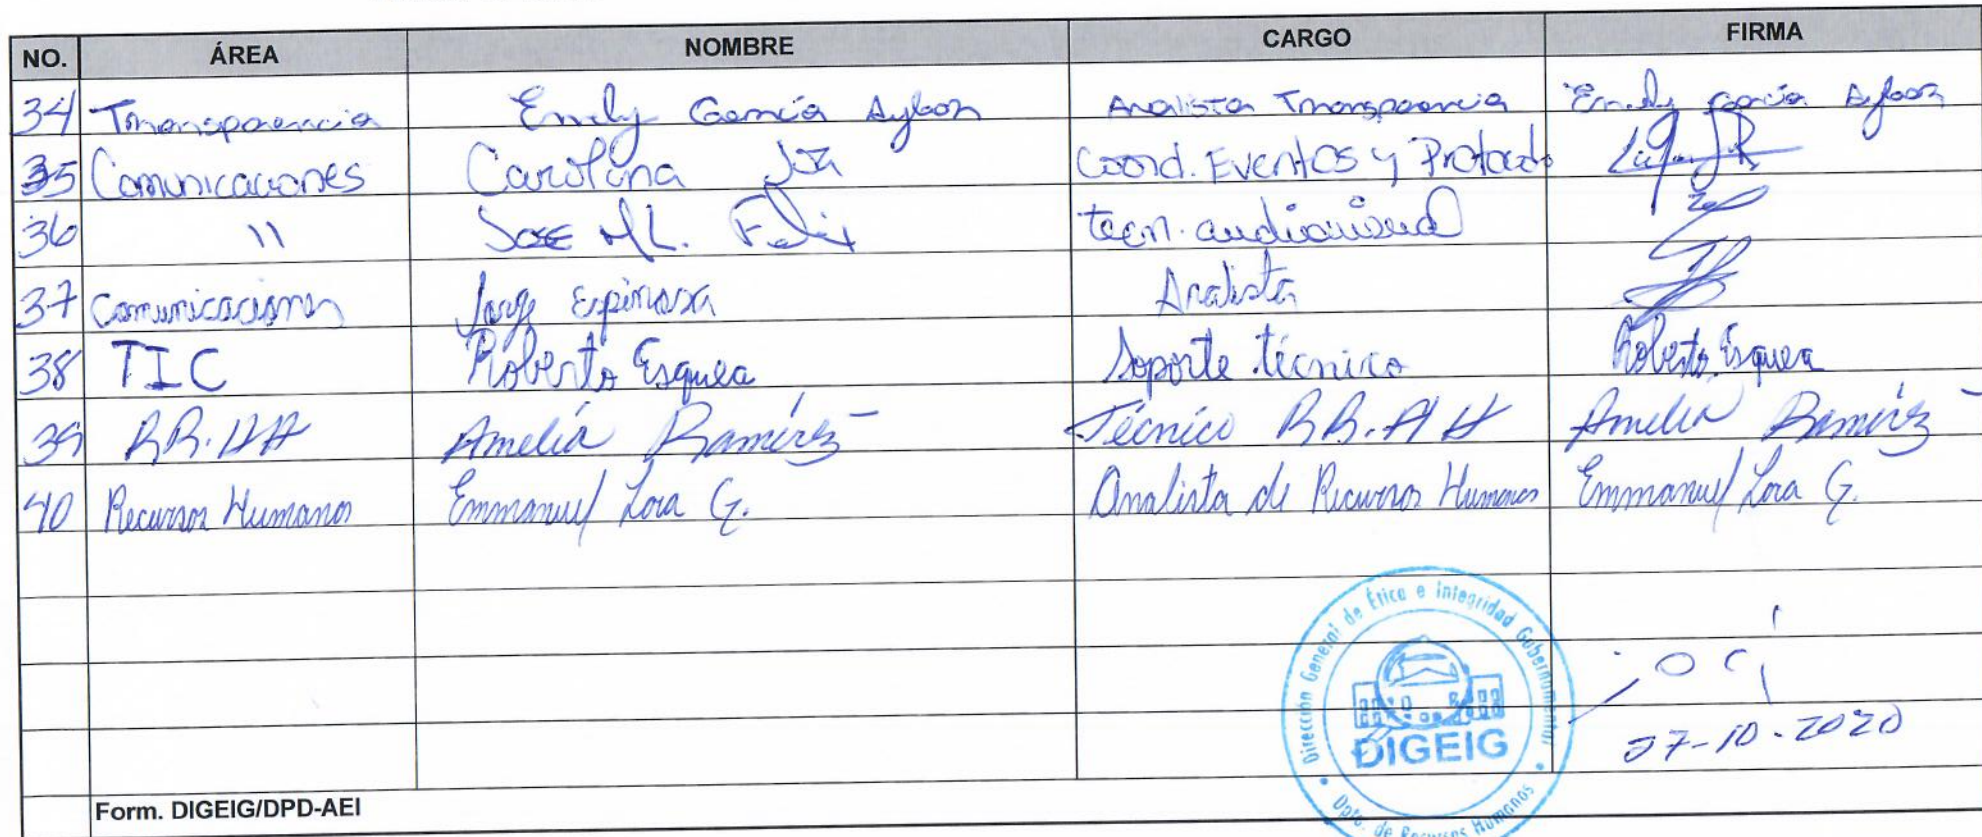 NO. ÁREA NOMBRE CARGO FIRMA
34 Transparencia Emely García Aybar Analista Transparencia Emely García Aybar
35 Comunicaciones Carolina Coord. Eventos y Protocolo
36 " Jose ML. Feliz tecn. audiovisual
37 Comunicaciones Jorge Espinosa Analista
38 TIC Roberto Esquea Soporte técnico Roberto Esquea
39 RR.HH Amelia Ramírez Técnico RR.HH Amelia Ramírez
40 Recursos Humanos Emmanuel Lora G. Analista de Recursos Humanos Emmanuel Lora G.
Dirección General de Ética e Integridad Gubernamental
DIGEIG
Dpto. de Recursos Humanos
27-10-2020
Form. DIGEIG/DPD-AEI